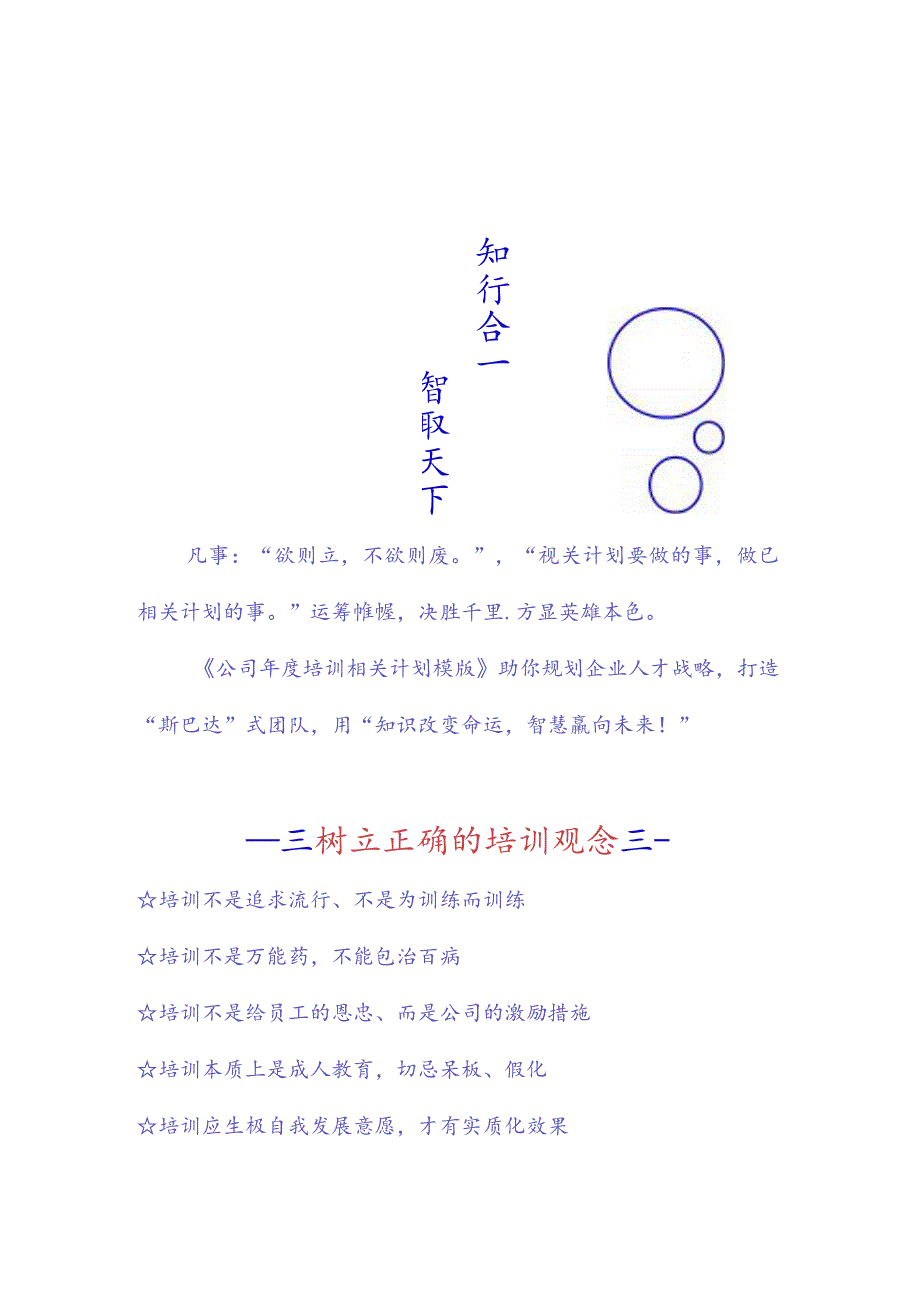 知行合一
智取天下
凡事：“欲则立，不欲则废。”，“视关计划要做的事，做已
相关计划的事。”运筹惟幄，决胜千里.方显英雄本色。
《公司年度培训相关计划模版》助你规划企业人才战略，打造
“斯巴达”式团队，用“知识改变命运，智慧赢向未来！”
—三树立正确的培训观念三-
☆培训不是追求流行、不是为训练而训练
☆培训不是万能药，不能包治百病
☆培训不是给员工的恩忠、而是公司的激励措施
☆培训本质上是成人教育，切忌呆板、假化
☆培训应生极自我发展意愿，才有实质化效果